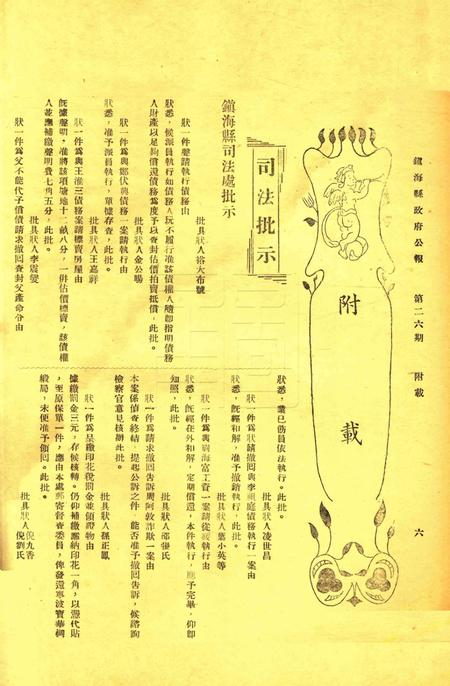 鎮海縣政府公報　第二六期　附載　六
附載
司法批示
鎮海縣司法處批示
批具狀人裕大布號
狀一件聲請執行債務由
狀悉，候派員執行如債務人玩不履行准該債權人隨即指明債務
人財產以足夠償還債務為度予以查封估價拍賣抵償，此批。
批具狀人金公賜
狀一件為與鄭伏興債務一案請執行由
狀悉，准予派員執行，單據存查，此批。
批具狀人王嘉祥
狀一件為與王淮三債務案請標賣房屋由
既據聲明，准將該項塘地十二畝八分，一併估價標賣，該債權
人並應補繳聲明費七角五分，此批。
批具狀人李震燮
狀一件為父不能代子償債請求撤回查封父產命令由
狀悉，業已飭員依法執行，此批。
批具狀人凌世昌
狀一件為狀請撤回與李庭債務執行一案由
狀悉，既經和解，准予撤銷執行，此批。
批具狀人葉小英等
狀一件為與海富工資一案請從緩執行由
狀悉，既經在外和解，定期償還，本件執行，應予完畢，仰即
知照，此批。
批具狀人邵張氏
狀一件為請求撤回告訴周阿敦詐欺一案由
本案係偵查終結，提起公訴之件，能否准予撤回告訴，候諮詢
檢察官意見核辦此批。
批具狀人孫正鳳
狀一件為呈繳印花稅罰金並領證物由
據繳罰金三元，存候核轉。仍仰補繳漏納印花一角，以憑代貼
，至原保單一件，應由本處郵寄督查委員，俾發還寧波寶華綢
緞局，未便准予領回。此批。
批具狀人倪九香
倪劉氏